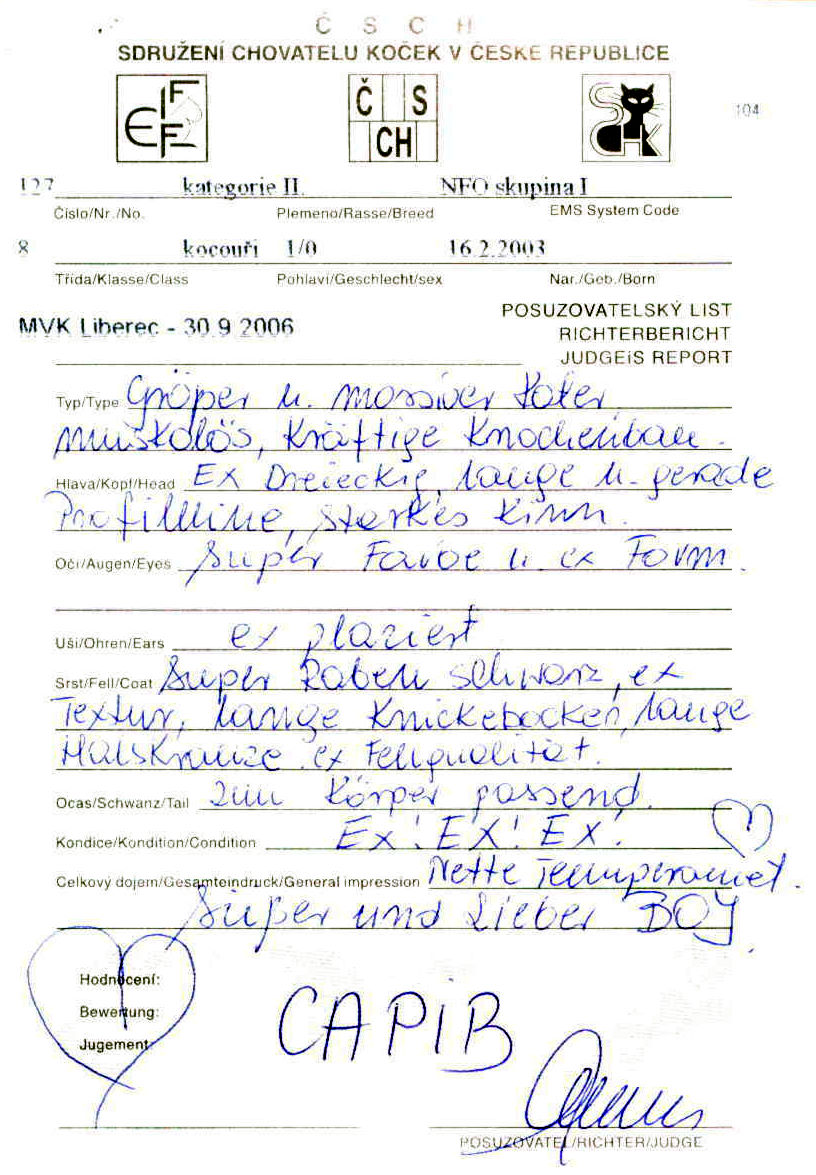 Č S C H
SDRUŽENÍ CHOVATELU KOČEK V ČESKE REPUBLICE
FIFE
Č S CH
SCHK
104
127 kategorie II. NFO skupina I
Číslo/Nr./No. Plemeno/Rasse/Breed EMS System Code
8 kocouři 1/0 16.2.2003
Třída/Klasse/Class Pohlaví/Geschlecht/sex Nar./Geb./Born
MVK Liberec - 30.9.2006
POSUZOVATELSKÝ LIST
RICHTERBERICHT
JUDGEiS REPORT
Typ/Type Größer u. massiver Kater
muskolös, Kräftige Knochenbau.
Hlava/Kopf/Head Ex Dreieckig, lange u. gerade
Profillinie, starkes Kinn.
Oči/Augen/Eyes Super Farbe u. ex Form.
Uši/Ohren/Ears ex plaziert
Srst/Fell/Coat Super Raben schwarz, ex
Textur, lange Knickebocker, lange
Halskrause. ex Fellqualität.
Ocas/Schwanz/Tail zum Körper passend.
Kondice/Kondition/Condition Ex! EX! Ex!
Celkový dojem/Gesamteindruck/General impression Nette Temperamet.
Super und Lieber BOY
Hodnocení:
Bewertung:
Jugement:
CAPIB
POSUZOVATEL/RICHTER/JUDGE